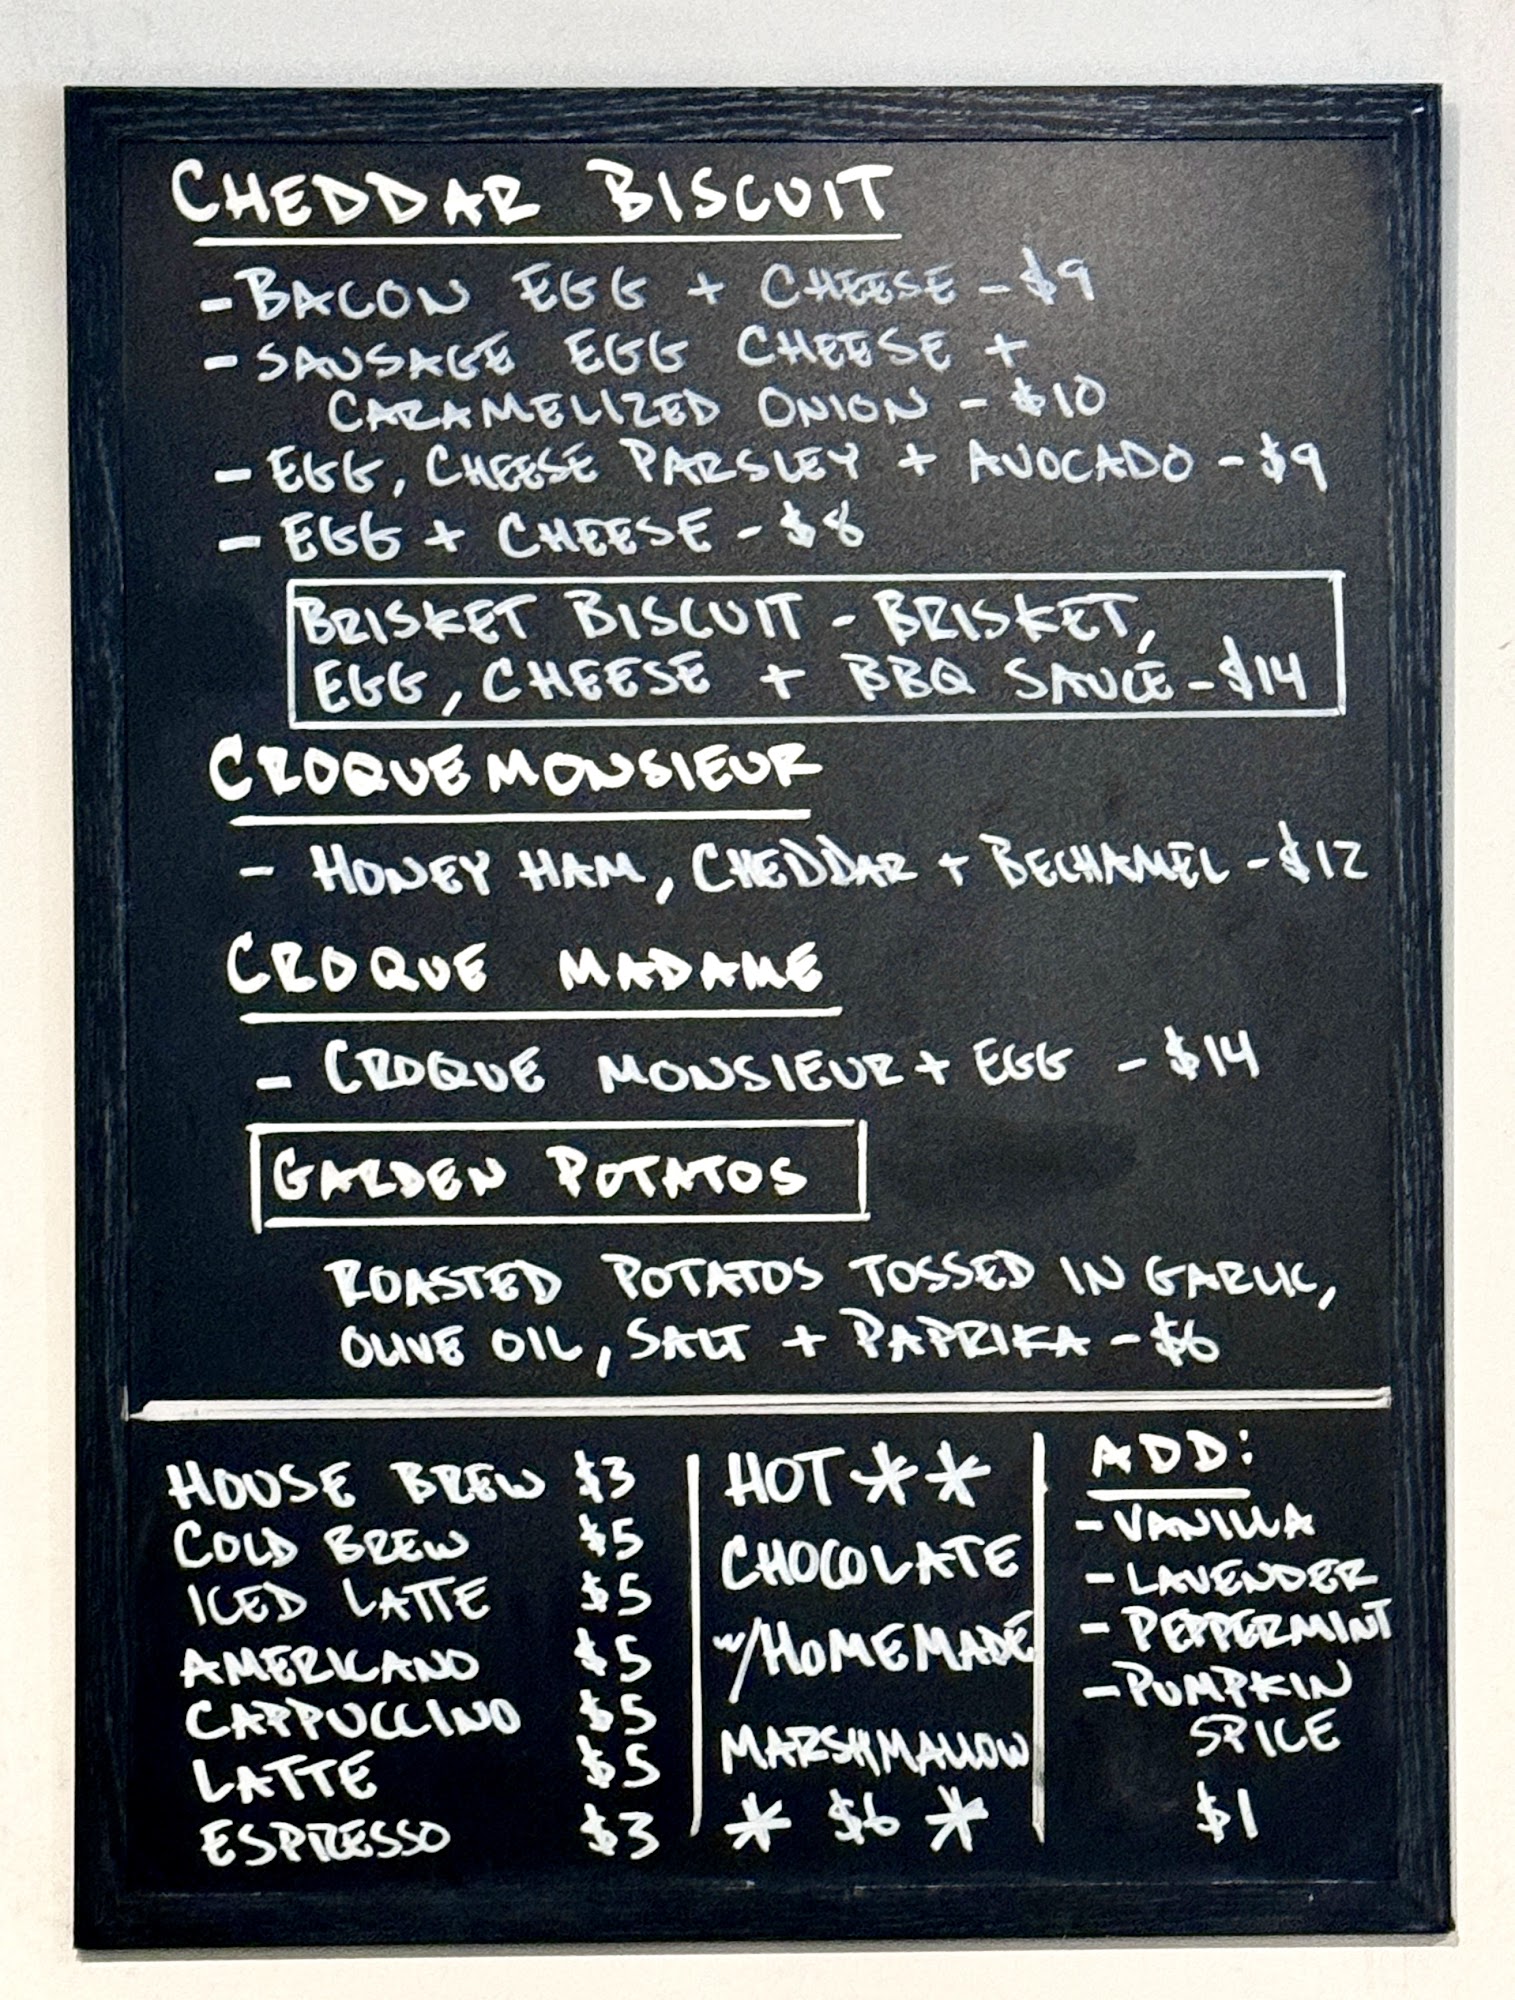 CHEDDAR BISCUIT
- BACON EGG + CHEESE - $9
- SAUSAGE EGG CHEESE +
CARAMELIZED ONION - $10
- EGG, CHEESE PARSLEY + AVOCADO - $9
- EGG + CHEESE - $8
BRISKET BISCUIT - BRISKET,
EGG, CHEESE + BBQ SAUCE - $14
CROQUE MONSIEUR
- HONEY HAM, CHEDDAR + BECHAMEL - $12
CROQUE MADAME
- CROQUE MONSIEUR + EGG - $14
GARDEN POTATOS
ROASTED POTATOS TOSSED IN GARLIC,
OLIVE OIL, SALT + PAPRIKA - $6
HOUSE BREW $3
COLD BREW $5
ICED LATTE $5
AMERICANO $5
CAPPUCCINO $5
LATTE $5
ESPRESSO $3
HOT **
CHOCOLATE
w/HOMEMADE
MARSHMALLOW
* $6 *
ADD:
- VANILLA
- LAVENDER
- PEPPERMINT
- PUMPKIN
SPICE
$1